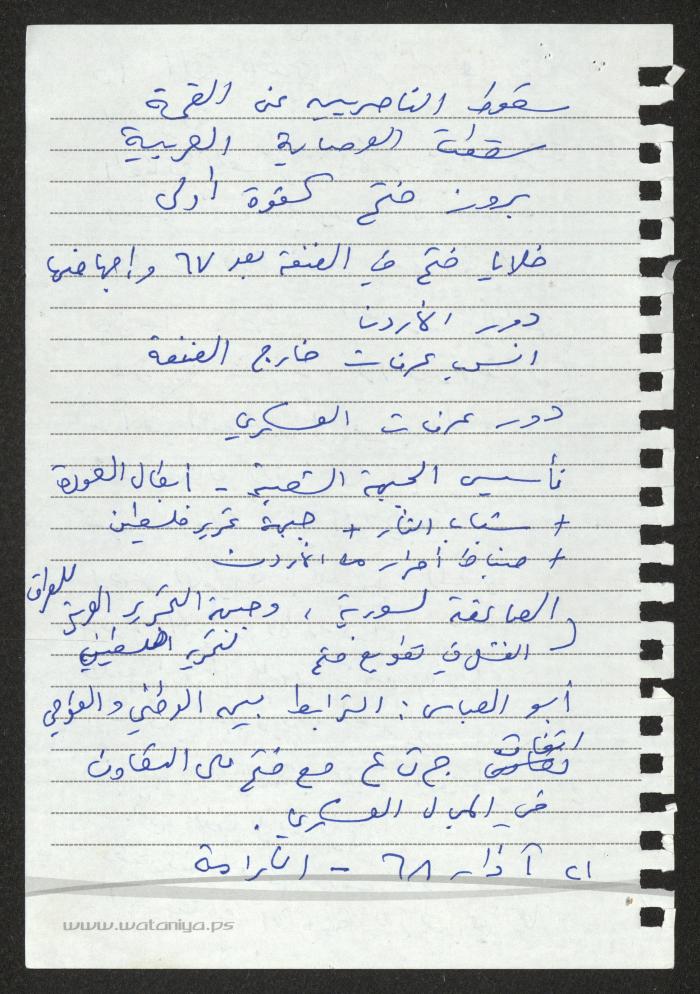 سقوط الناصريين عن القمة
سقطت الوصاية العربية
بروز فتح كقوة أولى
خلايا فتح في الضفة بعد ٦٧ وإجهاضها
دور الأردن
انسحب عرفات خارج الضفة
دور عرفات العسكري
تأسيس الجبهة الشعبية - أبطال العودة
+ شباب الثأر + جبهة تحرير فلسطين
+ ضباط أحرار من الأردن
الصاعقة لسورية ، وجبهة التحرير العربية للعراق
الفشل في تطويع فتح لتحرير الفلسطيني
أبو العباس : الترابط بين الوطني والقومي
اتفاق ج ت ع مع فتح على التعاون
في المجال العسكري .
٢١ آذار ٦٨ - الكرامة
www.wataniya.ps